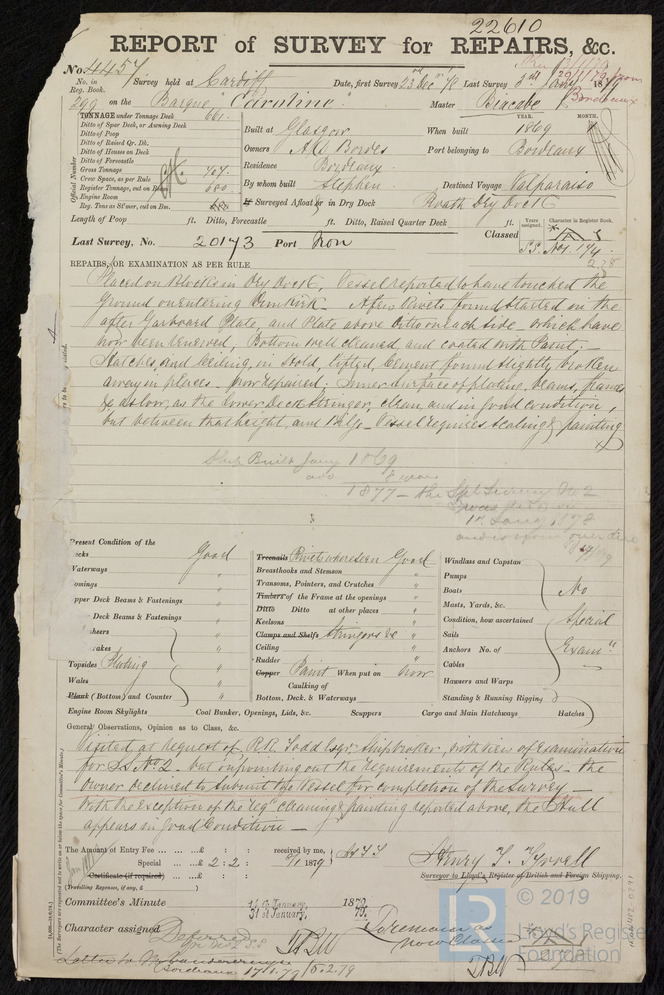 22610
REPORT of SURVEY for REPAIRS, &c.
No. 4457 Survey held at Cardiff Date, first Survey 23rd Decr '78 Last Survey 3rd Jany 1879
No. in Reg. Book.
299 on the Barque "Caroline" Master Biacabe
TONNAGE under Tonnage Deck 661.
Ditto of Spar Deck, or Awning Deck
Ditto of Poop
Ditto of Raised Qr. Dk.
Ditto of Houses on Deck
Ditto of Forecastle
Gross Tonnage 707.
Crew Space, as per Rule
Register Tonnage, cut on Beam 680
Engine Room
Reg. Tons as St'mr, cut on Bm.
Official Number
Built at Glasgow When built YEAR. 1869 MONTH.
Owners A D Bordes Port belonging to Bordeaux
Residence Bordeaux
By whom built Stephen Destined Voyage Valparaiso
If Surveyed Afloat or in Dry Dock Roath Dry Dock
Length of Poop ft. Ditto, Forecastle ft. Ditto, Raised Quarter Deck ft.
Years assigned. Character in Register Book.
Last Survey, No. 20173 Port Iron Classed
REPAIRS, OR EXAMINATION AS PER RULE
Placed on Blocks in Dry Dock, Vessel reported to have touched the
ground on entering Dunkirk - A few Rivets found started on the
after Garboard Plate, and Plate above Ditto on each side - which have
now been renewed, Bottom well cleaned and coated with Paint; -
Hatches, and Ceiling, in Hold, lifted, Cement found slightly broken
away in places - now repaired; Inner surface of plating, beams, frames
&c as low, as the Lower Deck Stringer, clean, and in good condition,
but between that height, and Bilge - Vessel requires scaling & painting
Ship Built Jany 1869
add 8 years
1877 - the Spl Survey No 2
Present Condition of the
Decks Good
Waterways "
Comings "
Upper Deck Beams & Fastenings "
Deck Beams & Fastenings "
Topsides Plating "
Wales "
Plank (Bottom) and Counter "
Engine Room Skylights Coal Bunker, Openings, Lids, &c. Scuppers Cargo and Main Hatchways Hatches
Treenails Rivets where seen Good
Breasthooks and Stemson "
Transoms, Pointers, and Crutches "
Timbers of the Frame at the openings "
Ditto Ditto at other places "
Keelsons "
Clamps and Shelfs Stringers &c "
Ceiling "
Rudder "
Copper Paint When put on Now
Caulking of
Bottom, Deck, & Waterways
Windlass and Capstan
Pumps
Boats No
Masts, Yards, &c.
Condition, how ascertained Special
Sails
Anchors No. of Examn
Cables
Hawsers and Warps
Standing & Running Rigging
General Observations, Opinion as to Class, &c.
Visited at request of R.R. Todd Esqr. Shipbroker, with view of Examination
for S.S. No 2 - but on pointing out the requirements of the Rules - the
owner declined to submit the Vessel for completion of the survey -
With the exception of the reqd cleaning & painting reported above, the Hull
appears in Good Condition -
The Amount of Entry Fee ... ... £ : : received by me,
Special ... ... £ 2 : 2 : 1879
Certificate (if required) ... £ : :
(Travelling Expenses, if any, £ )
Henry T. Tyrrell
Surveyor to Lloyd's Register of British and Foreign Shipping.
Committee's Minute 14th January 1879
31st January, 79.
Character assigned Deferred
for No 2 S.S
TBW
To remain as
now Classed
TBW
Bordeaux 17/1/79
© 2019
Lloyd's Register
Foundation